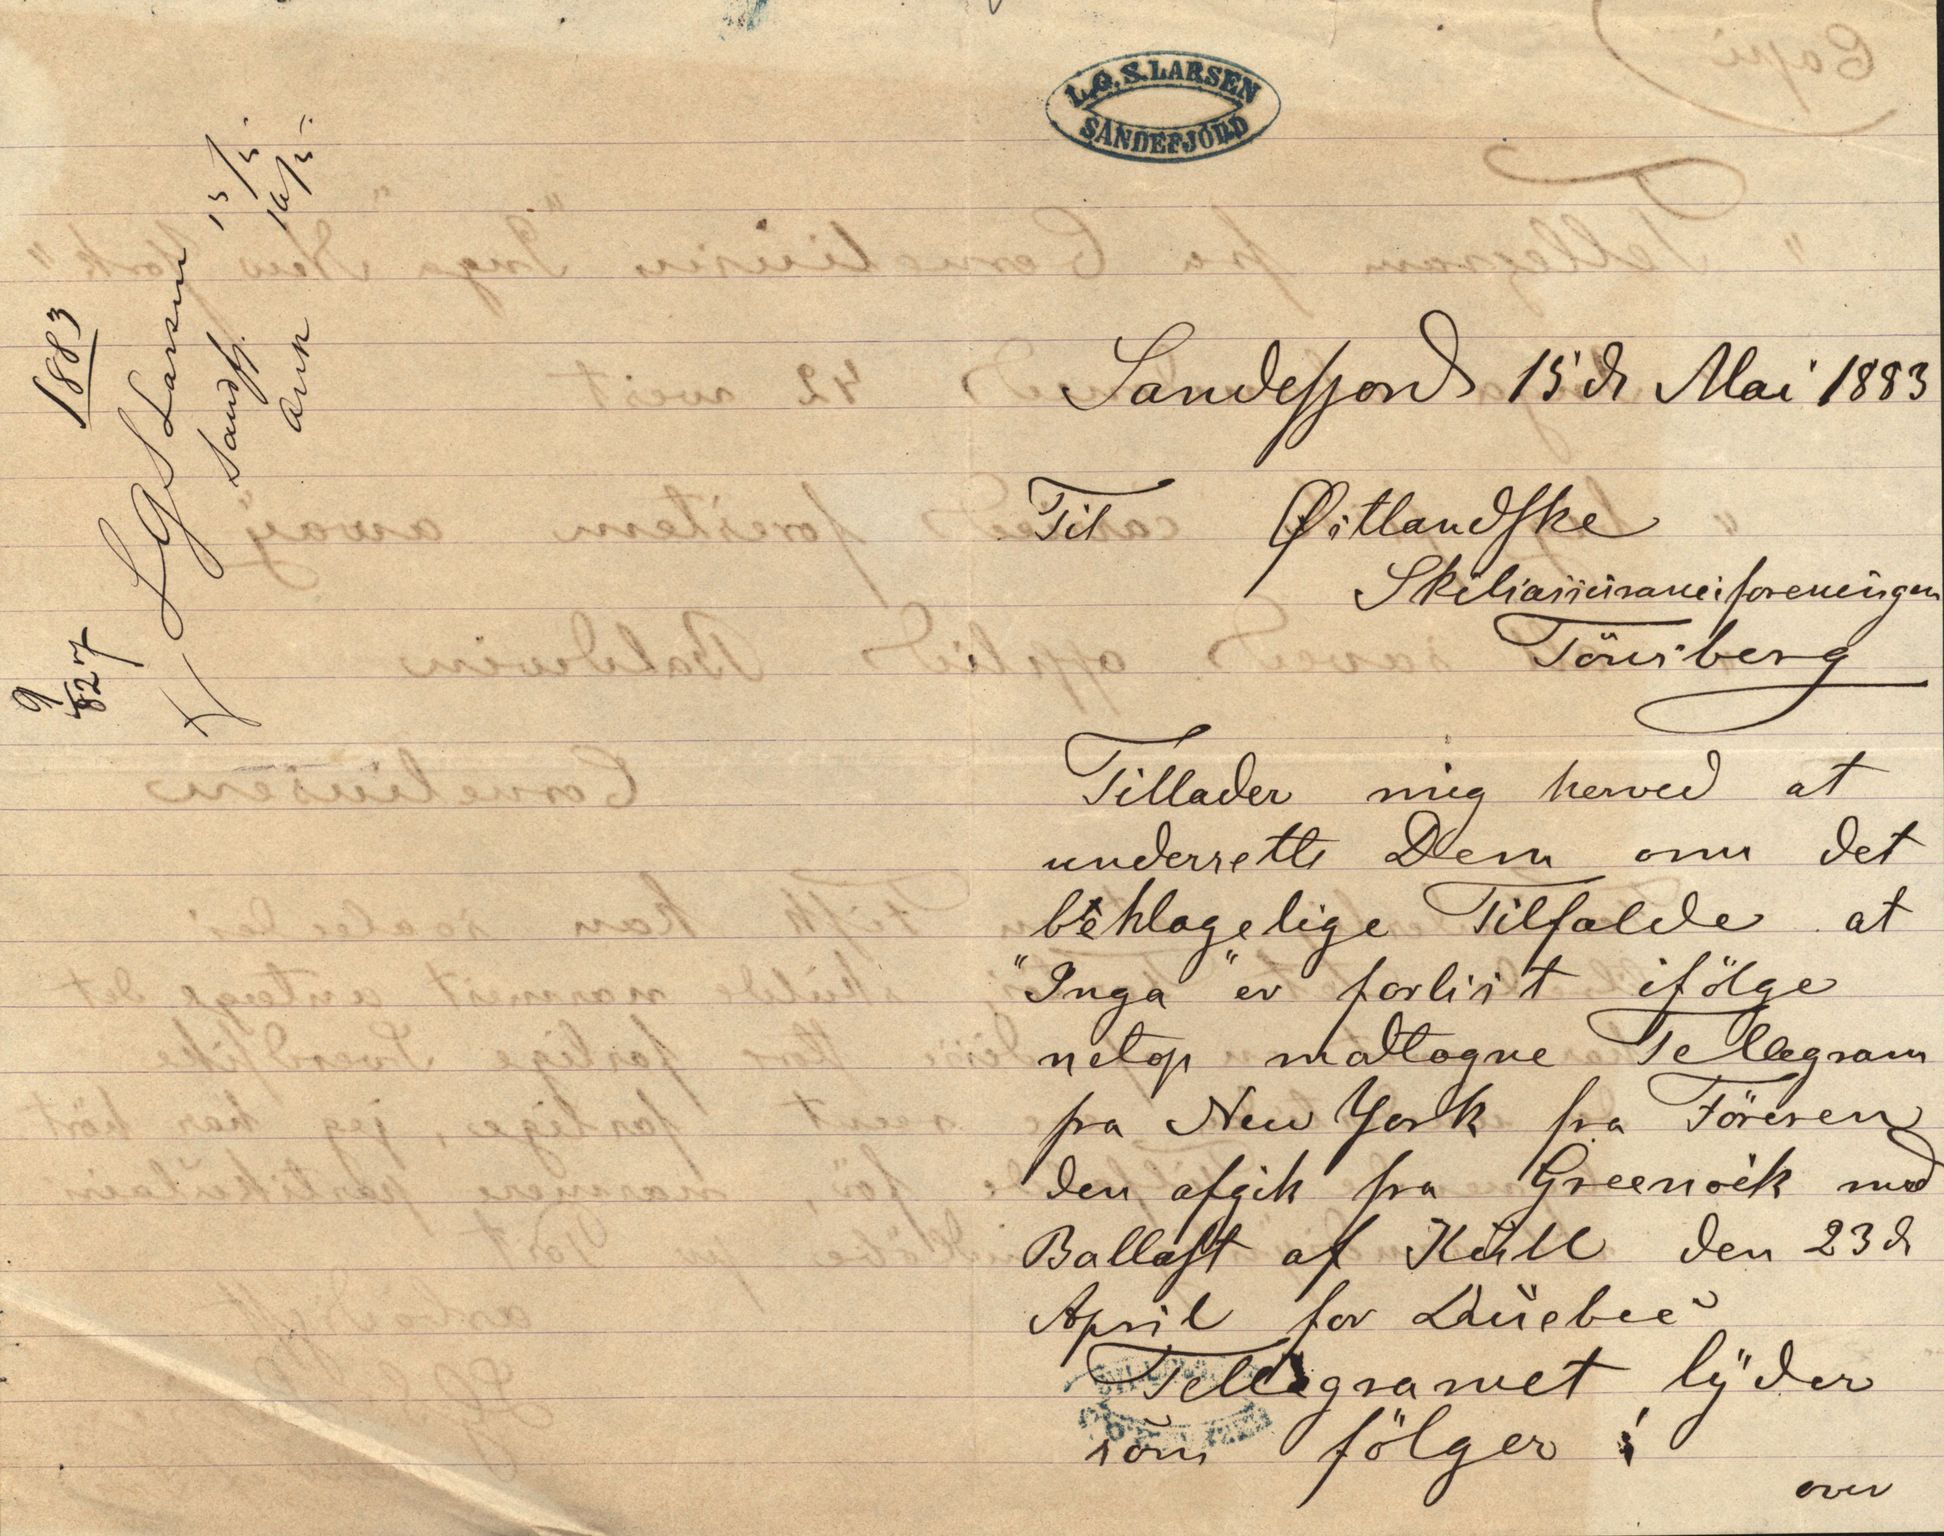 L.G.S. LARSEN
SANDEFJORD
Sandefjord 15 d. Mai 1883
Til Østlandske
Skibsassuranceforeningen
Tönsberg
Tillader mig herved at
underrette Dem om det
beklagelige Tilfælde at
"Inga" er forlist ifölge
netop mottagne Tellegram
fra New York fra Föreren
den afgik fra Greenock med
Ballast af Kull den 23 d.
April for Quebec
Tellegramet lyder
som fölger :
over
1883
LGS Larsen 15/5
Sandfj.
Ank 16/5
9
827